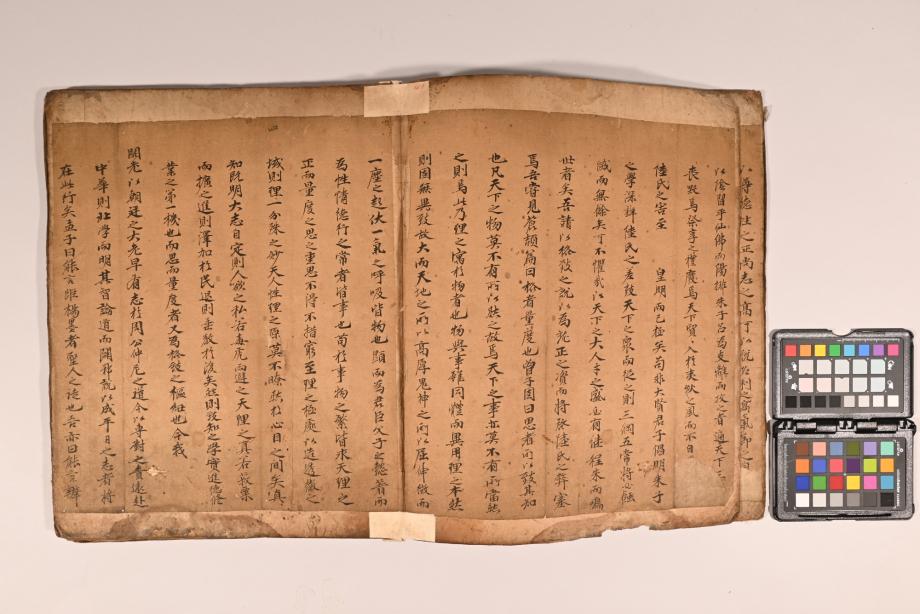 以尊德性之正尚志之高丁以脱
以陰習乎仙佛而陽排朱子吾為支離而攻之者遍天下
喪毀焉祭享之禮廢焉天下貿入於夷狄之風而不自
陸氏之害至 皇明而已極矣苟非大賢君子倡明朱子
之學深辨陸氏之差鼓天下之衆而從之則三綱五常將
滅而無餘矣可不懼哉以天下之大人才之盛必有繼程朱而
世者矣吾請以格致之說以為就正之資而將祛陸氏之弊塞
焉吾嘗見管韻篇曰格者量度也曾子固曰思者所以致其知
也凡天下之物莫不有所以然之故焉天下之事亦莫不有所當然
之則焉此乃理之寓於物者也物與事雖同體而異用理之本然
則固無異致放大而天地之所以高厚鬼神之所以屈伸微而
一塵之起伏一氣之呼吸皆物也顯而為君臣父子之懿著而
為性情德行之常者皆事也苟於事物之繁皆求天理之
正而量度之思之重思不得不措窮至理之極處以造透徹之
域則理一分殊之妙天人性理之原莫不瞭然於心目之間矣真
知既明大志自定則人欲之私若毒虎而避之天理之真若
而擴之進則澤加於民退則垂教於後矣然則致知之學實進德修
業之第一機也而思而量度者又為格致之樞紐也今我
閤老以朝廷之大老早有志於周公仲尼之道今以專對之責遠赴
中華則北學而明其習論道而闢邪說以成平日之志者將
在此行矣孟子曰能言距楊墨者聖人之徒也吾亦曰能言辨